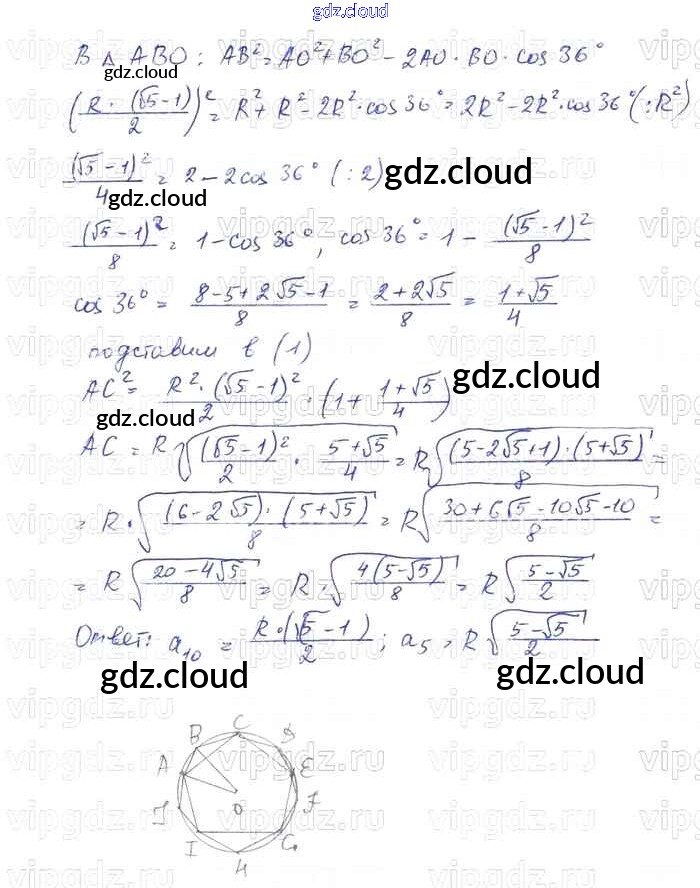 gdz.cloud
В △ ABO: AB² = AO² + BO² - 2AO · BO · cos 36°
gdz.cloud
(R · (√5-1) / 2)² = R² + R² - 2R² · cos 36° = 2R² - 2R² · cos 36° (: R²)
(√5 - 1)² / 4 = 2 - 2cos 36° (: 2) gdz.cloud
(√5 - 1)² / 8 = 1 - cos 36°, cos 36° = 1 - (√5 - 1)² / 8
cos 36° = (8 - 5 + 2√5 - 1) / 8 = (2 + 2√5) / 8 = (1 + √5) / 4
подставим в (1)
AC² = R² · (√5 - 1)² / 2 · (1 + (1 + √5) / 4) gdz.cloud
gdz.cloud
AC = R √((√5 - 1)² / 2 · (5 + √5) / 4) = R √((5 - 2√5 + 1) · (5 + √5) / 8) =
= R · √((6 - 2√5) · (5 + √5) / 8) = R √((30 + 6√5 - 10√5 - 10) / 8) =
= R √((20 - 4√5) / 8) = R · √(4(5 - √5) / 8) = R √((5 - √5) / 2)
Ответ: a₁₀ = R · (√5 - 1) / 2; a₅ = R √((5 - √5) / 2)
gdz.cloud gdz.cloud
C
B D
A E
O F
J
I G
H